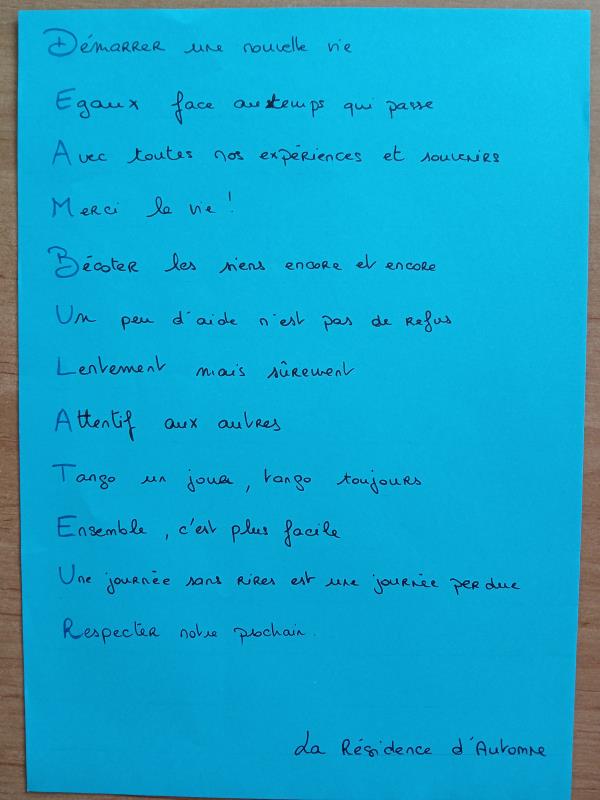 Démarrer une nouvelle vie
Egaux face au temps qui passe
Avec toutes nos expériences et souvenirs
Merci la vie !
Bécoter les siens encore et encore
Un peu d'aide n'est pas de refus
Lentement mais sûrement
Attentif aux autres
Tango un jour, tango toujours
Ensemble, c'est plus facile
Une journée sans rires est une journée perdue
Respecter notre prochain.
La Résidence d'Automne